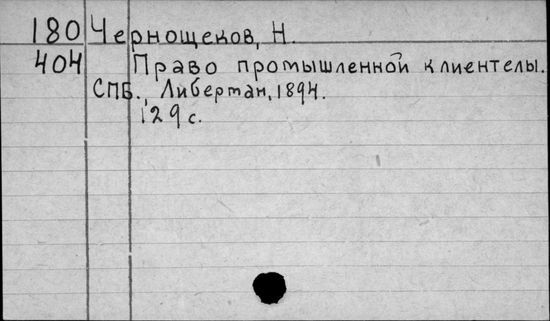 180 Чернощеков, Н.
404 Право промышленной клиентелы.
СПБ., Либерман, 1894.
129 с.